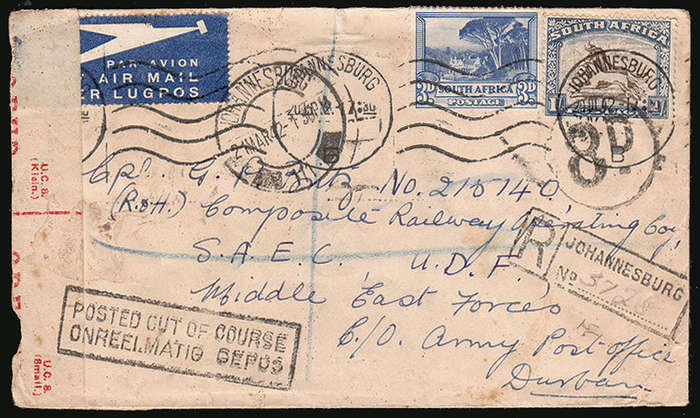 PAR AVION
AIR MAIL
ER LUGPOS
JOHANNESBURG
JOHANNESBURG
2 MAR 42
3D SOUTH AFRICA 3D
POSTAGE
SOUTH AFRICA
JOHANNESBURG
B
8D
U.C.8.
(Klein.)
Cpl. G. No. 215140
(R.&H.) Composite Railway Operating Coy
S.A.E.C. U.D.F.
Middle East Forces
C/O. Army Post office
Durban
R
JOHANNESBURG
No
POSTED OUT OF COURSE
ONREELMATIG GEPOS
U.C.8.
(Small.)